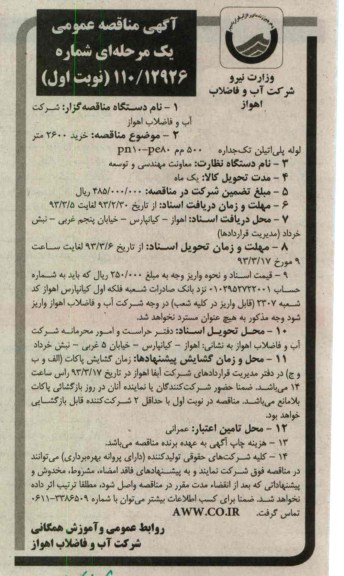 آگهی مناقصه عمومی
یک مرحله‌ای شماره
۱۱۰/۱۲۹۲۶ (نوبت اول)
وزارت نیرو
شرکت آب و فاضلاب
اهواز
۱ – نام دستگاه مناقصه‌گزار: شرکت
آب و فاضلاب اهواز
۲ – موضوع مناقصه: خرید ۲۶۰۰ متر
لوله پلی‌اتیلن تک‌جداره ۵۰۰ مم pn۱۰-pe۸۰
۳ – نام دستگاه نظارت: معاونت مهندسی و توسعه
۴ – مدت تحویل کالا: یک ماه
۵ – مبلغ تضمین شرکت در مناقصه: ۴۸۵/۰۰۰/۰۰۰ ریال
۶ – مهلت و زمان دریافت اسناد: از تاریخ ۹۳/۲/۳۰ لغایت ۹۳/۳/۵
۷ – محل دریافت اسـناد: اهواز – کیانپارس – خیابان پنجم غربی – نبش
خرداد (مدیریت قراردادها)
۸ – مهلت و زمان تحویل اسـناد: از تاریخ ۹۳/۳/۶ لغایت ساعت
۹ مورخ ۹۳/۳/۱۷
۹ – قیمت اسـناد و نحوه واریز وجه به مبلغ ۲۵۰/۰۰۰ ریال که باید به شـماره
حساب ۰۱۰۲۹۵۲۷۲۲۰۰۱ نزد بانک صادرات شـعبه فلکه اول کیانپارس اهواز کد
شـعبه ۲۳۰۷ (قابل واریز در کلیه شعب) در وجه شـرکت آب و فاضلاب اهواز واریز
شود وجه مذکور به هیچ عنوان مسترد نخواهد شد.
۱۰ – محـل تحویـل اسـناد: دفتـر حراسـت و امـور محرمانـه شـرکت
آب و فاضلاب اهواز به نشانی: اهواز – کیانپارس – خیابان ۵ غربی – نبش خرداد
۱۱ – محل و زمان گشایش پیشنهادها: زمان گشایش پاکات (الف و ب
و ج) در دفتر مدیریت قراردادهای شـرکت آبفا اهواز در تاریخ ۹۳/۳/۱۷ راس ساعت
۱۴ می‌باشـد. ضمنا حضور شـرکت‌کنندگان یا نماینده آنان در روز بازگشائی پاکات
بلامانع می‌باشـد. مناقصه در نوبت اول با حداقل ۲ شـرکت‌کننده قابل بازگشـایی
خواهد بود.
۱۲ – محل تامین اعتبار: عمرانی
۱۳ – هزینه چاپ آگهی به عهده برنده مناقصه می‌باشد.
۱۴ – کلیه شـرکت‌های حقوقی تولیدکننده (دارای پروانه بهره‌برداری) می‌توانند
در مناقصه فوق شـرکت نمایند و به پیشـنهادهای فاقد امضاء، مشروط، مخدوش و
پیشنهاداتی که بعد از انقضاء مدت مقرر در مناقصه واصل شود، مطلقا ترتیب اثر داده
نخواهد شـد. ضمنا برای کسب اطلاعات بیشتر می‌توان با شماره ۳۳۸۶۵۰۹-۰۶۱۱
تماس گرفت. AWW.CO.IR
روابط عمومی وآموزش همگانی
شرکت آب و فاضلاب اهواز